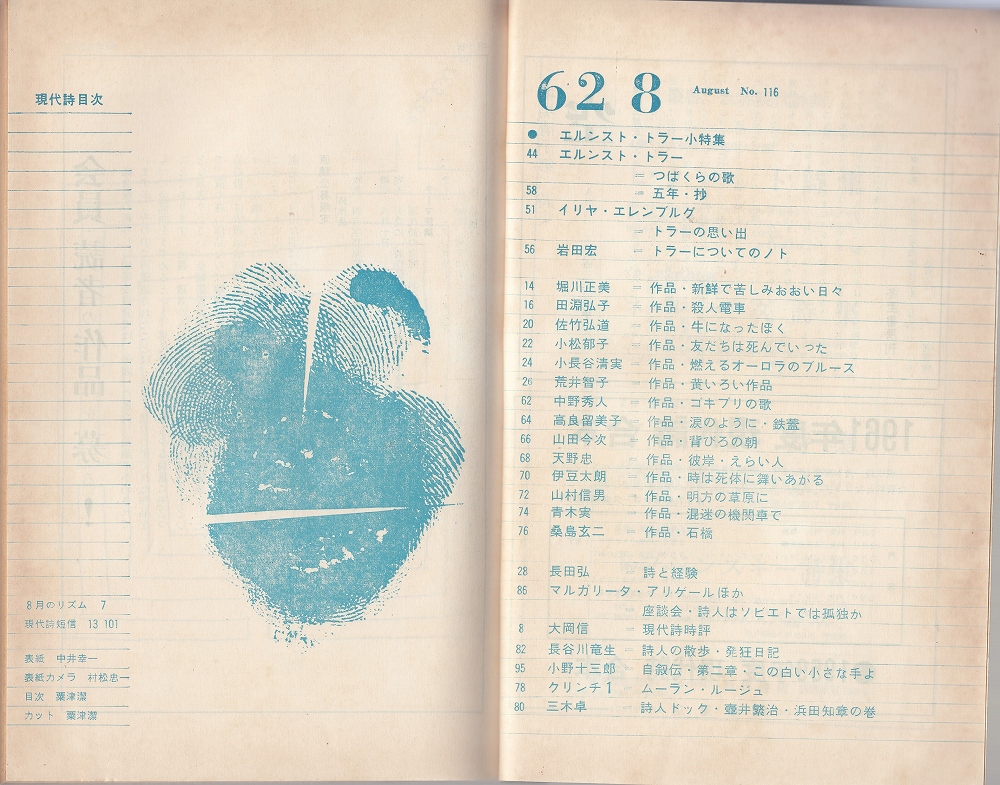 現代詩目次
8月のリズム 7
現代詩短信 13 101
表紙 中井幸一
表紙カメラ 村松忠一
目次 粟津潔
カット 粟津潔
62 8 August No. 116
● エルンスト・トラー小特集
44 エルンスト・トラー
= つばくらの歌
58 = 五年・抄
51 イリヤ・エレンブルグ
= トラーの思い出
56 岩田宏 = トラーについてのノト
14 堀川正美 = 作品・新鮮で苦しみおおい日々
16 田淵弘子 = 作品・殺人電車
20 佐竹弘道 = 作品・牛になったぼく
22 小松郁子 = 作品・友だちは死んでいった
24 小長谷清実 = 作品・燃えるオーロラのブルース
26 荒井智子 = 作品・黄いろい作品
62 中野秀人 = 作品・ゴキブリの歌
64 高良留美子 = 作品・涙のように・鉄蓋
66 山田今次 = 作品・背びろの朝
68 天野忠 = 作品・彼岸・えらい人
70 伊豆太朗 = 作品・時は死体に舞いあがる
72 山村信男 = 作品・明方の草原に
74 青木実 = 作品・混迷の機関車で
76 桑島玄二 = 作品・石橋
28 長田弘 = 詩と経験
86 マルガリータ・アリゲールほか
= 座談会・詩人はソビエトでは孤独か
8 大岡信 = 現代詩時評
82 長谷川竜生 = 詩人の散歩・発狂日記
95 小野十三郎 = 自叙伝・第二章・この白い小さな手よ
78 クリンチ1 ムーラン・ルージュ
80 三木卓 詩人ドック・壺井繁治・浜田知章の巻